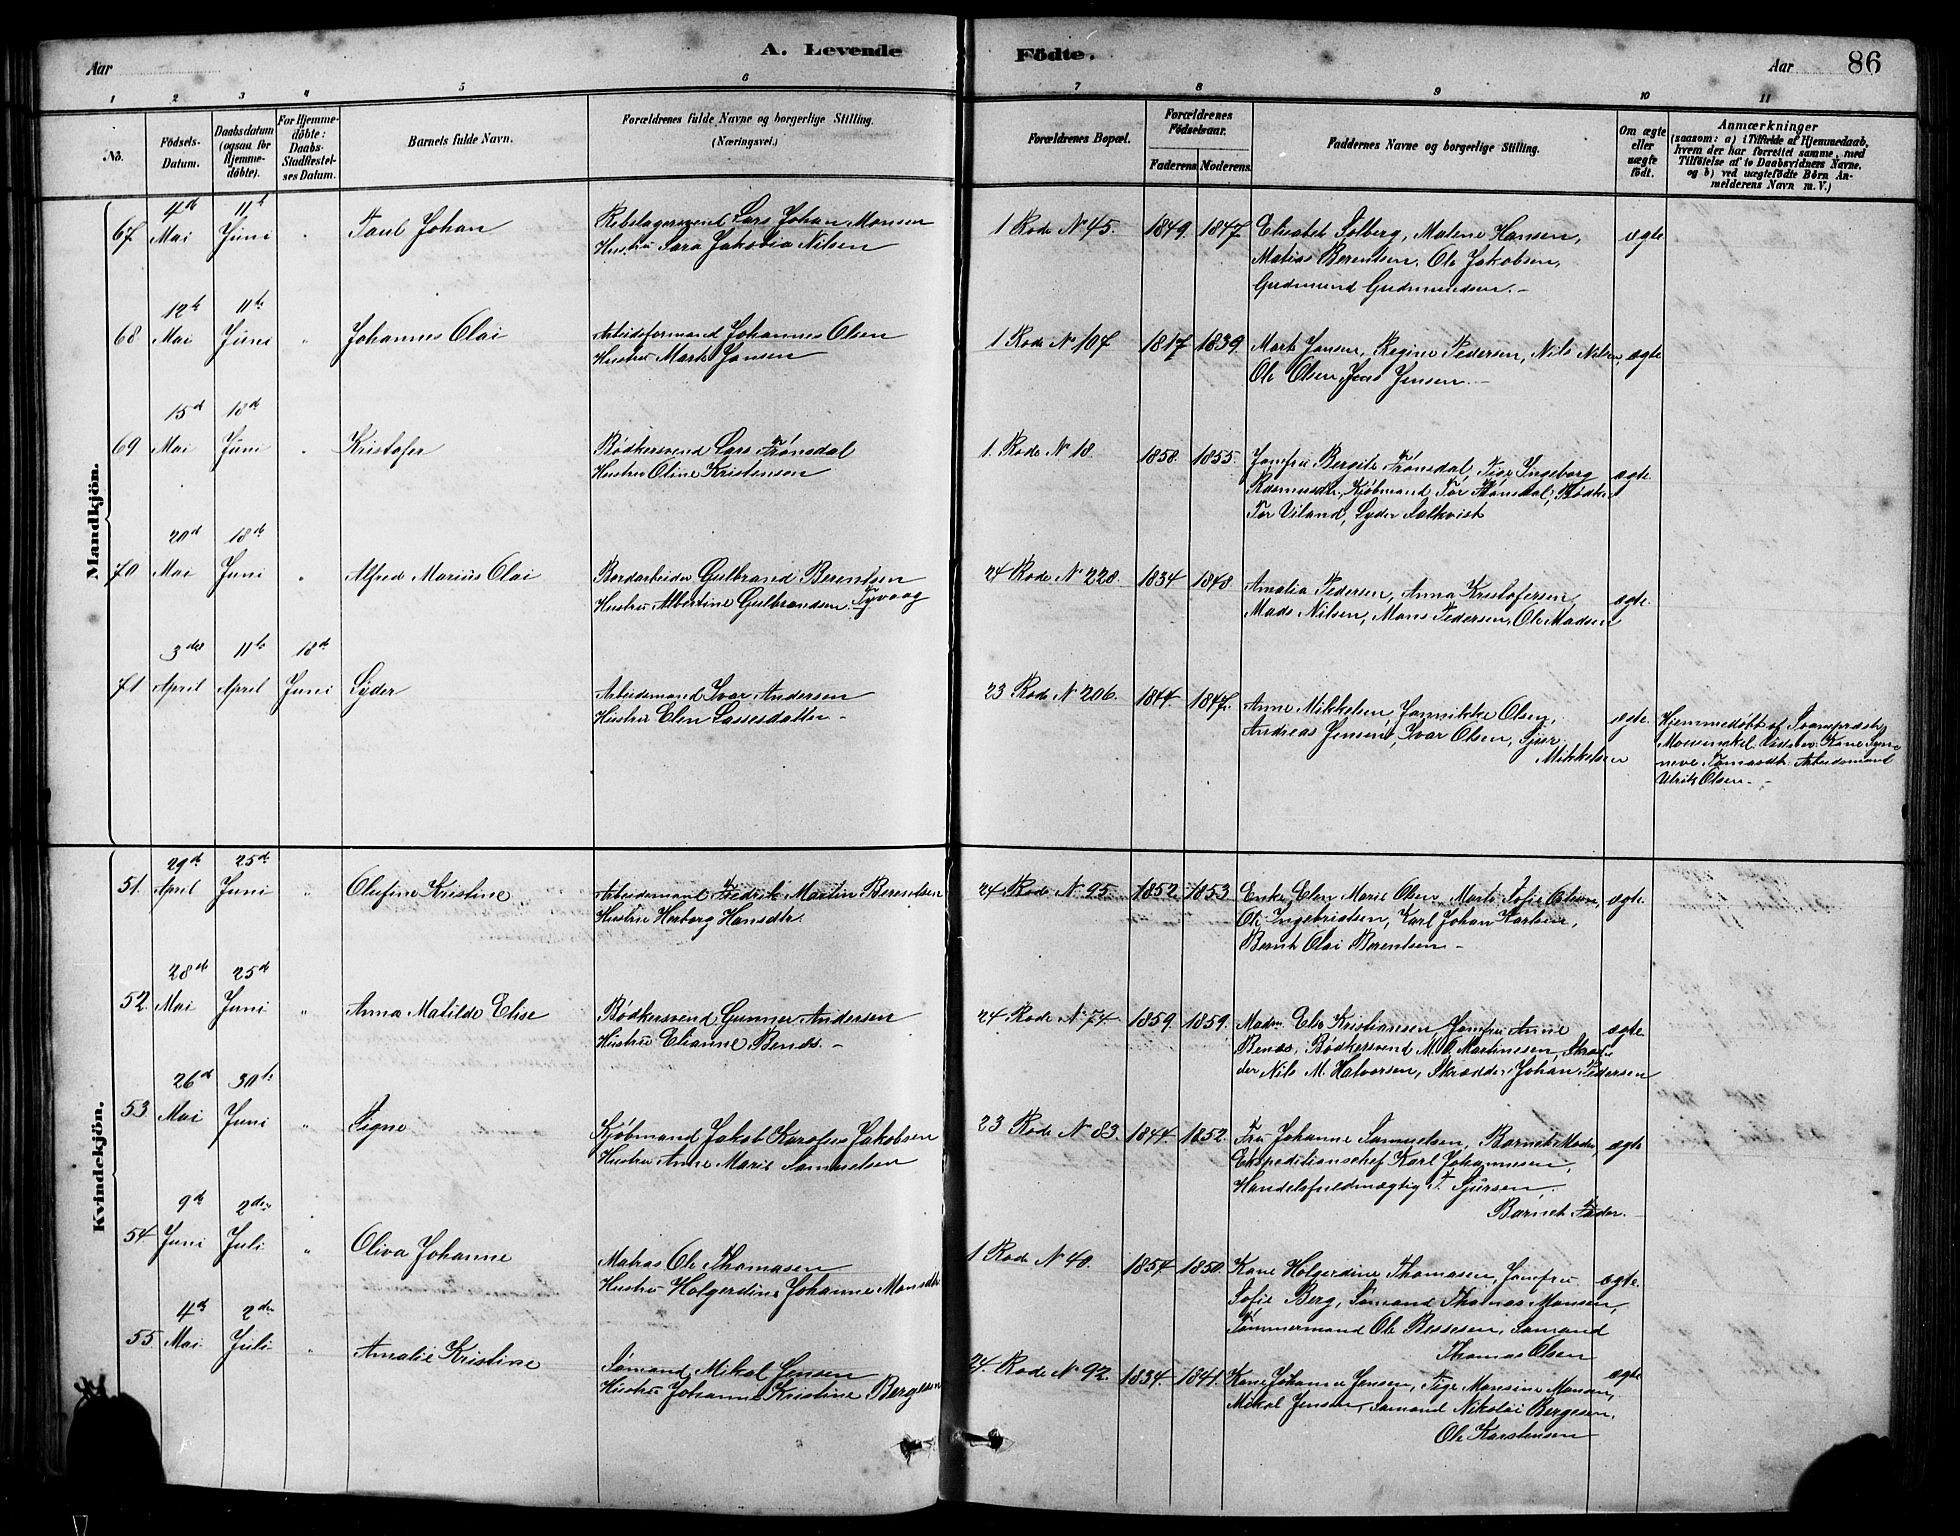 A. Levende Födte.
Aar
Aar 86
1 2 3 4 5 6 7 8 9 10 11
No.
Födsels-Datum.
Daabsdatum (ogsaa for Hjemme-döbte).
For Hjemme-döbte: Daabs-Stadfæstel-ses Datum.
Barnets fulde Navn.
Forældrenes fulde Navne og borgerlige Stilling.
(Næringsvei.)
Forældrenes Bopæl.
Forældrenes Födselsaar.
Faderens. Moderens.
Faddernes Navne og borgerlige Stilling.
Om ægte eller uægte födt.
Anmærkninger
(saasom: a) i Tilfælde af Hjemmedaab,
hvem der har forrettet samme, med
Tilföielse af to Daabsvidners Navne.
og b) ved uægtefödte Börn An-
melderens Navn m. V.)
Mandkjön.
67 4de Mai 11te Juni " Paul Johan
Rebslagersvend Lars Johan Monsen
Hustru Sara Jakobia Nilsen
1 Rode No 45. 1849. 1847.
Elisabet Solberg, Malene Hansen,
Matias Berentsen, Ole Jakobsen,
Gudmund Gudmundsen.
ægte
68 12te Mai 11te Juni " Johannes Olai
Arbeidsformand Johannes Olsen
Hustru Marte Jansen
1 Rode No 107. 1817 1839.
Marte Jansen, Regine Pedersen, Nils Nilsen,
Ole Olsen, Jens Jensen.
ægte
69 15de Mai 18de Juni " Kristofer
Bødkersvend Lars Frónsdal
Hustru Oline Kristensen
1. Rode No 18. 1858. 1855.
Jomfru Bergite Frónsdal, Pige Ingeborg
Rasmusdtr, Kjøbmand Tor Fronsdal, Bødker
Tor Viland, Syder Salkvist
ægte.
70 20de Mai 18de Juni " Alfred Marius Olai
Bordarbeider Gulbrand Berentsen
Hustru Albertine Gulbrandsen
24 Rode No 228. 1834. 1848.
Amalia Pedersen, Anna Kristofersen,
Mads Nilsen, Mons Pedersen, Ole Madsen
ægte.
71 3die April 11te April 18de Juni Syder
Arbeidsmand Ivar Andersen
Hustru Elen Lassesdatter
23 Rode No 206. 1844. 1847.
Anne Mikkelsen, Jannikke Olsen,
Andreas Jensen, Ivar Olsen, Sjur
Mikkelsen
ægte.
Hjemmedøbt af Svampræst
Monsinakel. Vidner: Kone Syn-
neve Tomasdtr. Arbeidsmand
Ulrik Olsen.
Kvindekjön.
51. 29de April 25de Juni " Olufine Kristine
Arbeidsmand Fredrik Martin Berentsen
Hustru Herborg Hansdtr.
24 Rode No 95. 1852. 1853.
Enke Elen Marie Olsen, Marte Sofie Olsen,
Ole Ingebrigtsen, Karl Johan Karlsen,
Bernt Olai Berentsen
ægte.
52. 28de Mai 25de Juni " Anna Matilde Elise
Bødkersvend Gunner Andersen
Hustru Elianne Bends.
24 Rode No 74. 1859. 1859.
Madm Else Kristiansen, Jomfru Anne
Bends, Bødkersvend M. O. Martinesen, Skræd-
der Nils M. Halvorsen, Skrædder Johan Pedersen
ægte.
53. 26de Mai 30te Juni " Signe
Kjøbmand Jakob Karófus Jakobsen
Hustru Anne Marie Samuelsen
23 Rode No 83. 1844. 1852.
Fru Johanne Samuelsen, Barnets Moder,
Ekspeditionschef Karl Johannesen,
Handelsfuldmægtig T. Sjursen,
Barnets Fader.
ægte
54 9de Juni 2den Juli " Oliva Johanne
Matros Ole Thomasen
Hustru Holgerdine Johanne Monsdtr
1 Rode No 40. 1854. 1850.
Kone Holgerdine Thomasen, Jomfru
Sofie Berg, Sømand Thomas Monsen,
Tømmermand Ole Bessesen, Sømand
Thomas Olsen
ægte.
55 4de Mai 2den Juli " Amalie Kristine
Sømand Mikal Jensen
Hustru Johanne Kristine Bergesen
24. Rode No 92. 1834. 1841.
Kone Johanne Jensen, Pige Monsine Monsen,
Mikal Jensen, Sømand Nikolai Bergesen,
Ole Karstensen
ægte